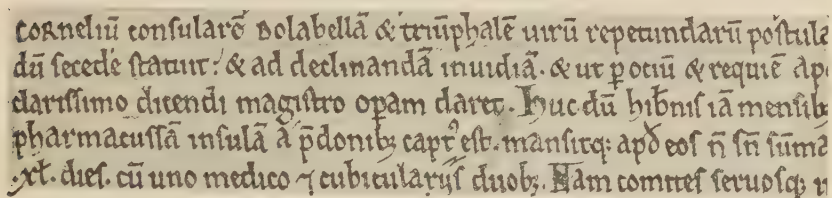 CORneliū conſularē Dolabellā & triūphalē uirū repetundarū poſtula
dū ſecede ſtatuit: & ad declinandā inuidiā. & ut p ociū & requiē Ap
clariſſimo dicendi magiſtro opam daret. Huc dū hibniſ iā menſib;
pharmacuſſā inſulā a p̄donib; capt᷒ eſt. manſitq; apđ eoſ ñ ſñ ſūma
.xł. dieſ. cū uno medico ⁊ cubicularijſ duob;. Nam comiteſ ſeruoſq;